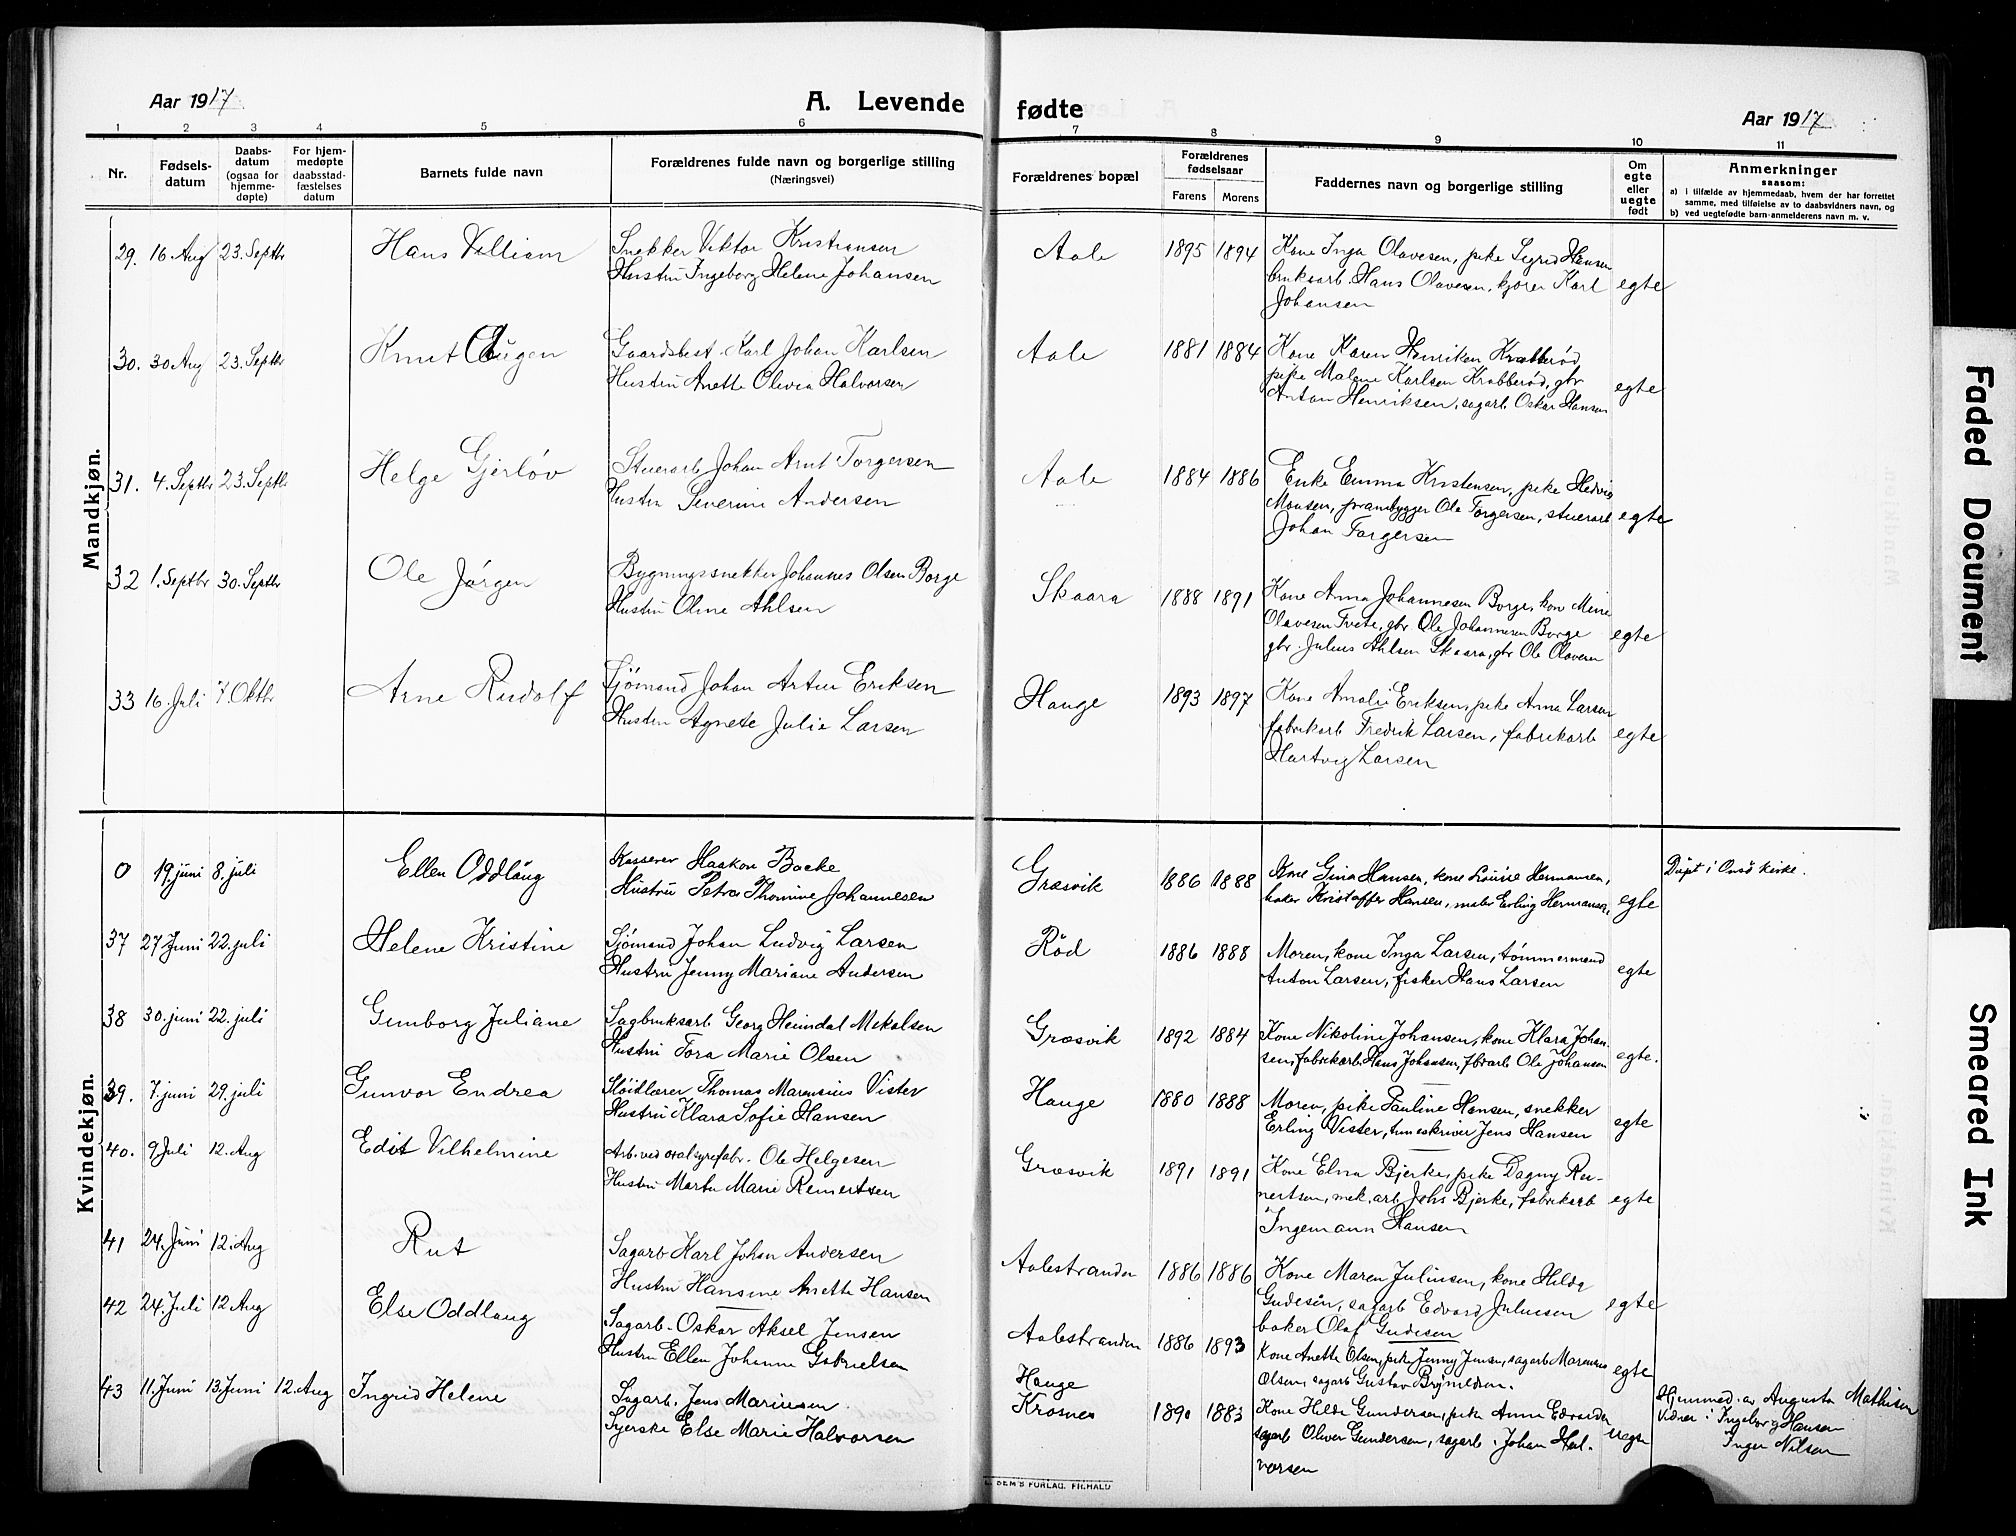 Aar 1917
A. Levende fødte
Aar 1917
1 2 3 4 5 6 7 8 9 10 11
Nr.
Fødsels-
datum
Daabs-
datum
(ogsaa for
hjemme-
døpte)
For hjem-
medøpte
daabsstad-
fæstelses
datum
Barnets fulde navn
Forældrenes fulde navn og borgerlige stilling
(Næringsvei)
Forældrenes bopæl
Forældrenes
fødselsaar
Farens Morens
Faddernes navn og borgerlige stilling
Om
egte
eller
uegte
født
Anmerkninger
saasom:
a) i tilfælde av hjemmedaab, hvem der har forrettet
samme, med tilføielse av to daabsvidners navn, og
b) ved uegtefødte barn-anmelderens navn m. v.
Mandkjøn.
29. 16 Aug 23. Septbr Hans Villiam
Snekker Viktor Kristiansen
Hustru Ingeborg Helene Johansen
Aale 1895 1894
Kone Inga Olavesen, pike Sigrid Hansen
bruksarb. Hans Olavesen, kjører Karl
Johansen
egte
30. 30 Aug 23. Septbr Knut Eugen
Gaardsbest. Karl Johan Karlsen
Hustru Anette Olivia Halvorsen
Aale 1881 1884
Kone Karen Henriksen Krabberød
pike Malene Karlsen Krabberød, gbr
Anton Henriksen, sagarb. Oskar Hansen
egte
31. 4. Septbr 23. Septbr Helge Gjerløv
Stuerarb Johan Arnt Torgersen
Hustru Severine Andersen
Aale 1884 1886
Enke Emma Kristensen, pike Hedvig
Monsen, prambygger Ole Torgersen, stuerarb
Johan Torgersen
egte
32 1. Septbr 30. Septbr Ole Jørgen
Bygningssnekker Johannes Olsen Borge
Hustru Oline Ahlsen
Skaara 1888 1891
Kone Anna Johannesen Borge, kone Mine
Olavesen Tvete, gbr Ole Johannesen Borge
gbr. Julius Ahlsen Skaara, gbr Ole Olavesen
egte
33 16. Juli 7. Oktbr Arne Rudolf
Sjømand Johan Artur Eriksen
Hustru Agnete Julie Larsen
Hauge 1893 1897
Kone Amalie Eriksen, pike Anna Larsen
fabrikarb Fredrik Larsen, fabrikarb
Hartvig Larsen
egte
Kvindekjøn.
0 19. juni 8. juli Ellen Oddlaug
Kasserer Haakon Backe
Hustru Petra Thomine Johannesen
Græsvik 1886 1888
Kone Gina Hansen, kone Louise Hermansen,
baker Kristoffer Hansen, maler Erling Hermansen
egte
Døpt i Onsø kirke.
37 27. Juni 22. juli Helene Kristine
Sjømand Johan Ludvig Larsen
Hustru Jenny Mariane Andersen
Rød 1886 1888
Moren, kone Inga Larsen, tømmermand
Anton Larsen, fisker Hans Larsen
egte
38 30. juni 22. juli Gunborg Juliane
Sagbruksarb Georg Heimdal Mikalsen
Hustru Tora Marie Olsen
Græsvik 1892 1884
Kone Nikoline Johansen, kone Klara Johan
sen, fabrikarb. Hans Johansen, fbrarb Ole Johansen
egte.
39. 7. juni 29. juli Gunvor Endrea
Sløidlærer Thomas Marensius Vister
Hustru Klara Sofie Hansen
Hauge 1880 1888
Moren, pike Pauline Hansen, snekker
Erling Vister, tuneskriver Jens Hansen
egte
40. 9 Juli 12. Aug Edit Vilhelmine
Arb. ved oxalsyrefabr. Ole Helgesen
Hustru Marta Marie Reinertsen
Græsvik 1891 1891
Kone Elna Bjerke, pike Dagny Rei-
nertsen, mek. arb. Johs Bjerke, fabrikarb
Ingemann Hansen
egte
41 24. Juni 12. Aug Rut
Sagarb Karl Johan Andersen
Hustru Hansine Anette Hansen
Aalestranden 1886 1886
Kone Maren Juliussen, kone Hilda
Gudesen, sagarb Edvard Juliussen
baker Olaf Gudesen
egte
42 24. Juli 12 Aug Else Oddlaug
Sagarb. Oskar Aksel Jensen
Hustru Ellen Johanne Gabrielsen
Aalestranden 1886 1893
Kone Anette Olsen, pike Jenny Jensen, sagarb Marensius
Olsen, sagarb Gustav Brynildsen.
egte
43 11. Juni 13. Juni 12. Aug Ingrid Helene
Sagarb. Jens Mariusen
Syerske Else Marie Halvorsen
Hauge
Krosnes 1890 1883
Kone Hilda Gundersen, pike Anna Edvardsen
sagarb Oliver Gundersen, sagarb. Johan Hal-
vorsen
uegte
Hjemmed. av Augusta Mathisen
Vidner: Ingeborg Hansen
Inger Nilsen
SEM'S FORLAG, FR.HALD
Faded Document
Smeared Ink